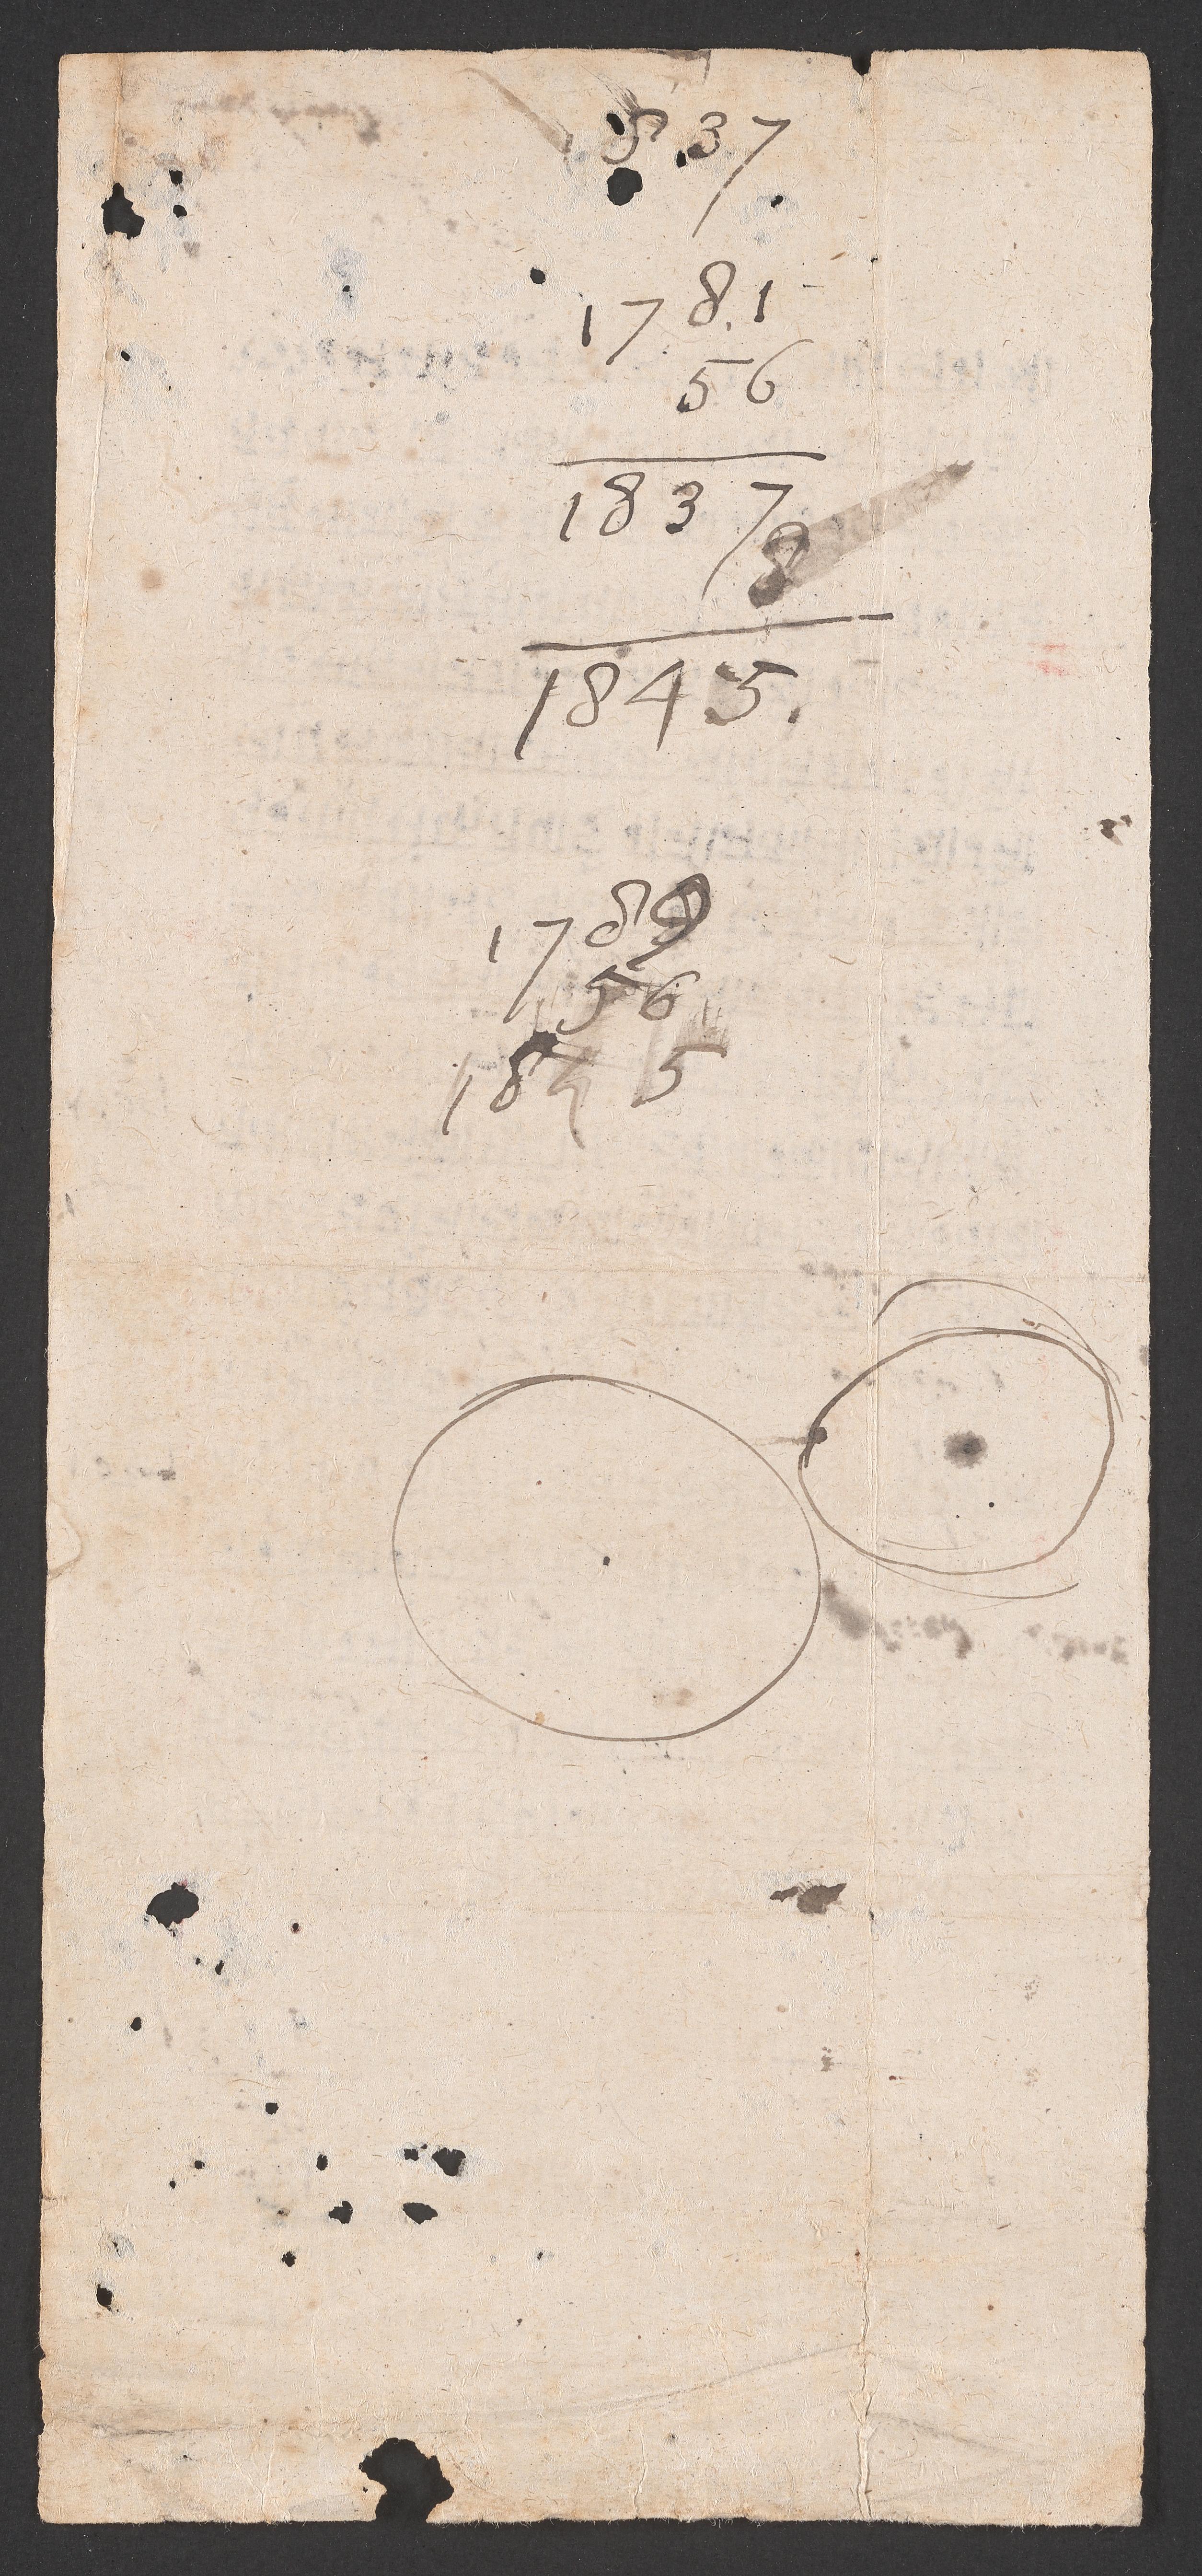 1837
178.1
56
1837
8
1845.
1789
56
1845